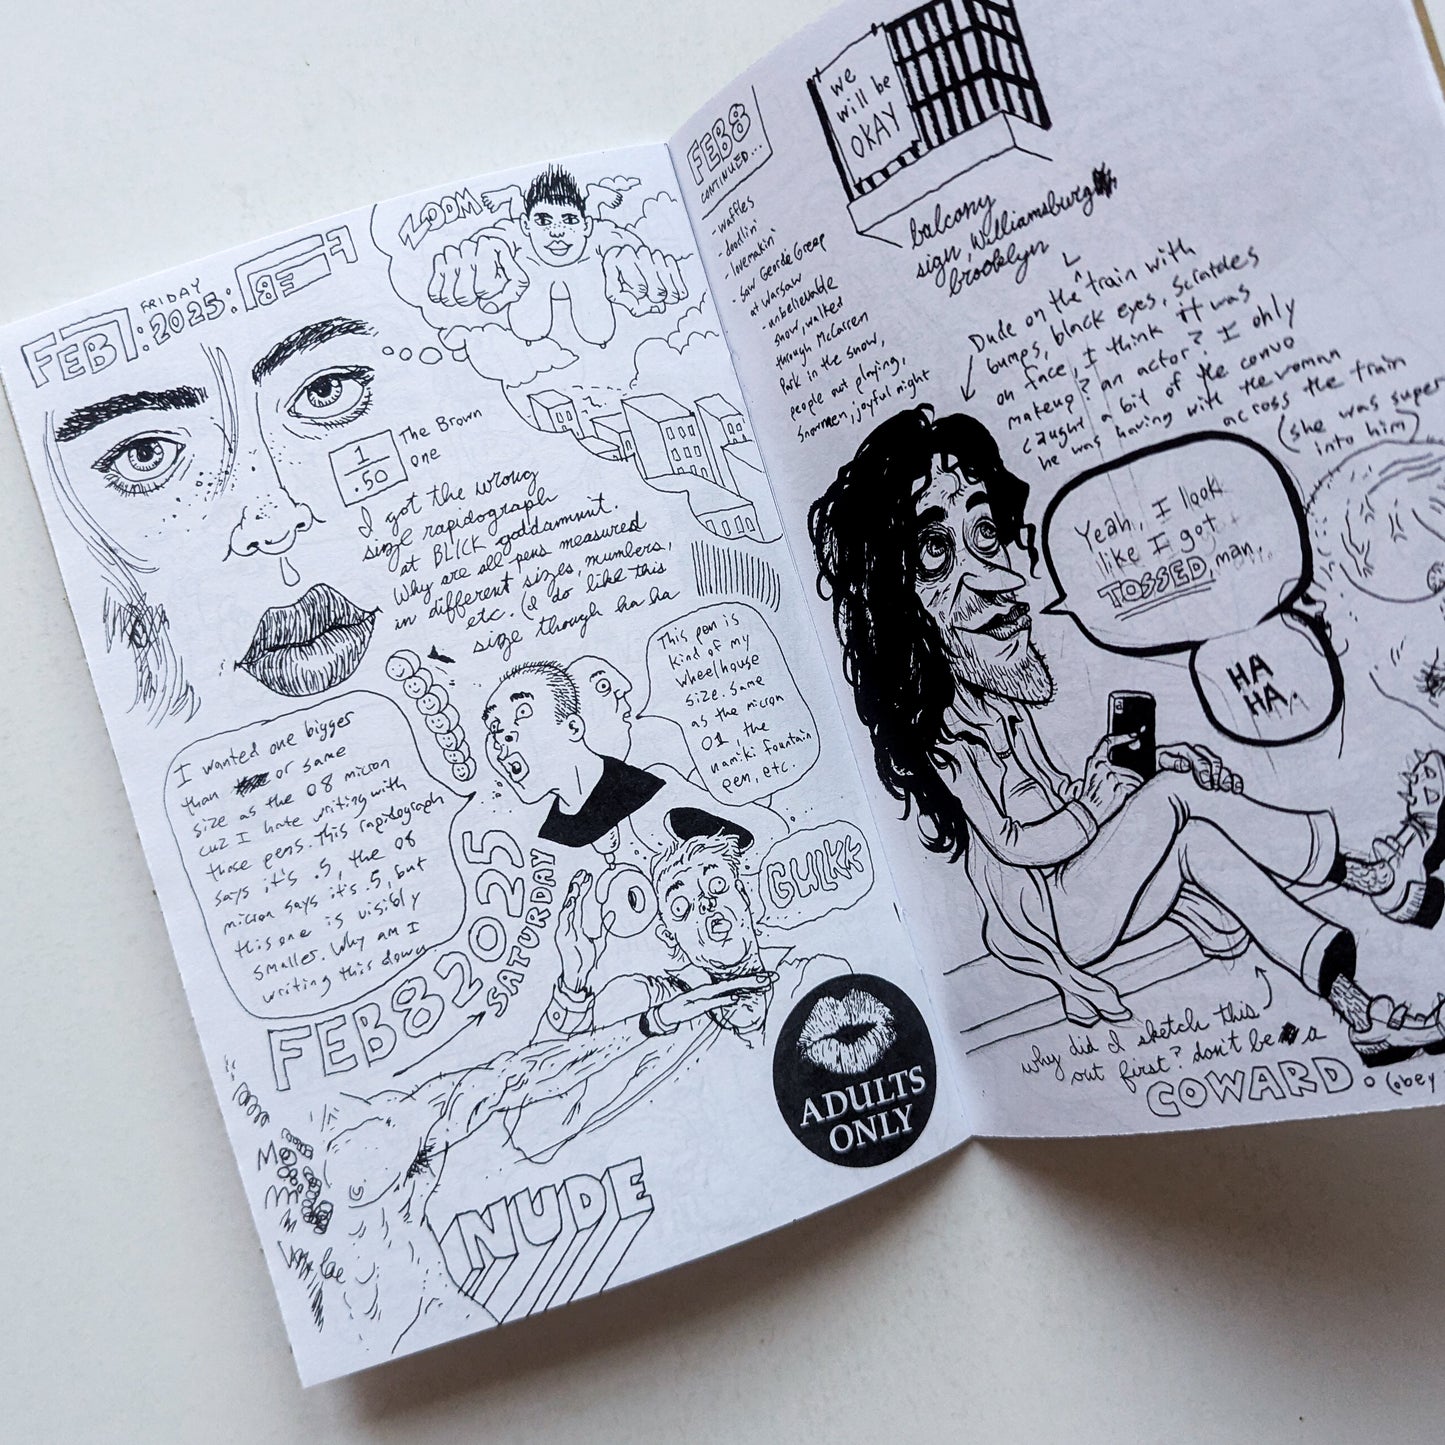 FEB 7:
FRIDAY
2025:
FEB
ZOOM
1
.50
The Brown
one
I got the wrong
size rapidograph
at BLICK goddamnit.
Why are all pens measured
in different sizes, numbers,
etc. (I do like this
size though ha ha
This pen is
kind of my
wheelhouse
size. Same
as the micron
01, the
namiki fountain
pen, etc.
I wanted one bigger
than or same
size as the 08 micron
cuz I hate writing with
those pens. This rapidograph
says it's .5, the 08
micron says it's .5, but
this one is visibly
smaller. Why am I
writing this down
GULKK
FEB 8 2025
SATURDAY
NUDE
ADULTS
ONLY
FEB 8
CONTINUED...
- waffles
- doodlin'
- lovemakin'
- saw Geordie Greep
at Warsaw
- unbelievable
snow, walked
through McCarren
Park in the snow,
people out playing,
snowmen, joyful night
we
will be
OKAY
balcony
sign, Williamsburg
brooklyn
Dude on the L train with
bumps, black eyes, scratches
on face, I think it was
makeup? an actor? I only
caught a bit of the convo
he was having with the woman
across the train
(she was super
into him)
Yeah, I look
like I got
TOSSED, man,
HA
HA.
why did I sketch this
out first? don't be a
COWARD. (obey